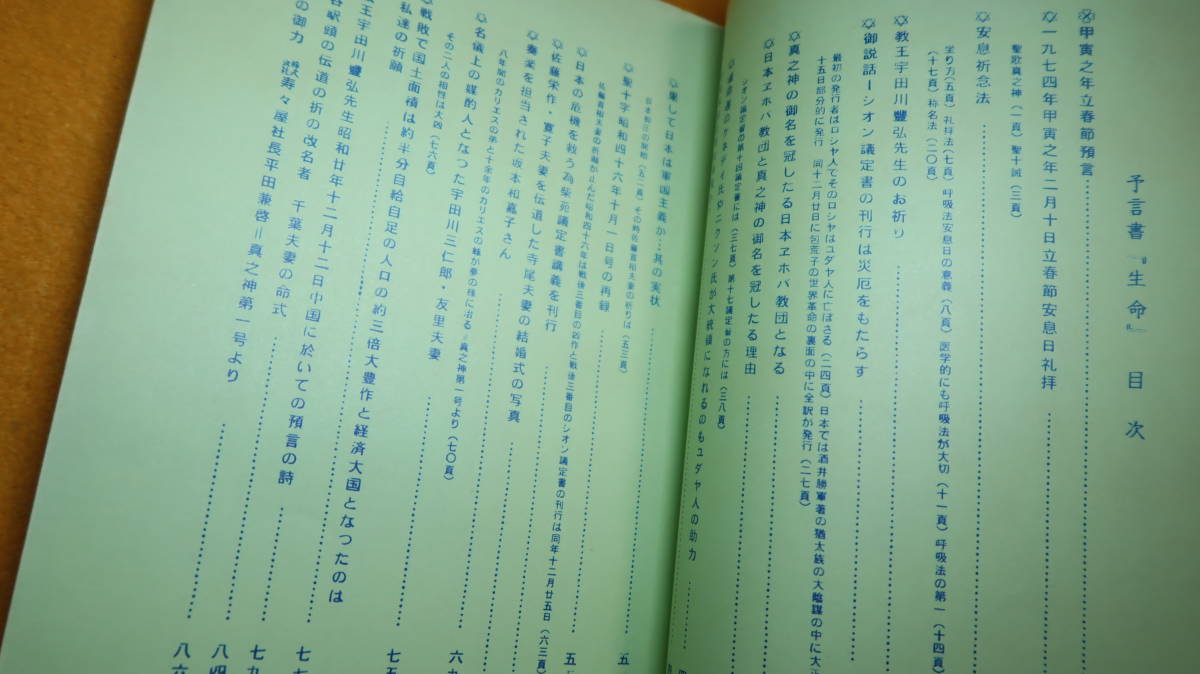 予言書『生命』目次
甲寅之年立春節預言
一九七四年甲寅之年二月十日立春節安息日礼拝
聖歌真之神(一頁) 聖十誡(三頁)
安息祈念法
坐り方(五頁)礼拝法(七頁)呼吸法安息日の意義(八頁)医学的にも呼吸法が大切(十一頁)呼吸法の第一(十四頁)
(十七頁)称名法(二〇頁)
教王宇田川豐弘先生のお祈り
御説話―シオン議定書の刊行は災厄をもたらす
最初の発行者はロシヤ人でそのロシヤはユダヤ人に亡ぼさる(二四頁)日本では酒井勝軍著の猶太族の大陰謀の中に大正
十五日部分的に発行 同十二月廿日に包荒子の世界革命の裏面の中に全訳が発行(二七頁)
真之神の御名を冠したる日本ヱホバ教団となる
日本ヱホバ教団と真之神の御名を冠したる理由
シオン議定書の第十四議定書には(三七頁)第十七議定書の方には(三八頁)
ケネディ氏やニクソン氏が大統領になれるのもユダヤ人の助力
果して日本は軍国主義か…其の実状
(五一頁)その時佐藤首相夫妻の祈りは(五三頁)
聖十字昭和四十六年十月一日号の再録
佐藤首相夫妻の祈願が止んだ昭和四十六年は戦後三番目の凶作と戦後三番目のシオン議定書の刊行は同年十二月廿五日(六三頁)
日本の危機を救う為柴苑議定書講義を刊行
佐藤栄作・寛子夫妻を伝道した寺尾夫妻の結婚式の写真
奏楽を担当された坂本和嘉子さん
八年間のカリエスの弟と十余年のカリエスの妹が夢の様に治る=真之神第一号より(七〇頁)
名儀上の媒酌人となった宇田川三仁郎・友里夫妻
その二人の相性は大凶(七六頁)
戦敗で国土面積は約半分自給自足の人口の約三倍大豊作と経済大国となったのは
私達の祈願
王宇田川豐弘先生昭和廿年十二月十二日中国に於いての預言の詩
谷駅頭の伝道の折の改名者 千葉夫妻の命式
の御力 株式会社寿々屋社長平田兼啓=真之神第一号より
五
五
六九
七五
七七
七九
八四
八六